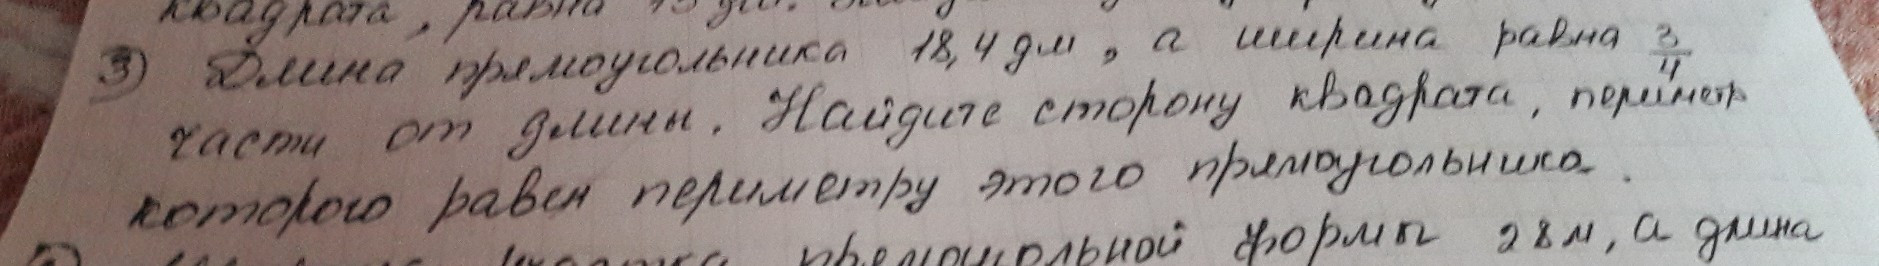 квадрата, равна
3) Длина прямоугольника 18,4 дм, а ширина равна 3/4
части от длины. Найдите сторону квадрата, периметр
которого равен периметру этого прямоугольника.
прямоугольной формы 28 м, а длина